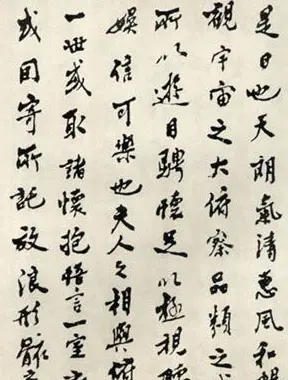 是日也天朗氣清惠風和暢
觀宇宙之大俯察品類之
所以遊目騁懷足以極視聽
娛信可樂也夫人之相與俯
一世或取諸懷抱悟言一室
或因寄所託放浪形骸之